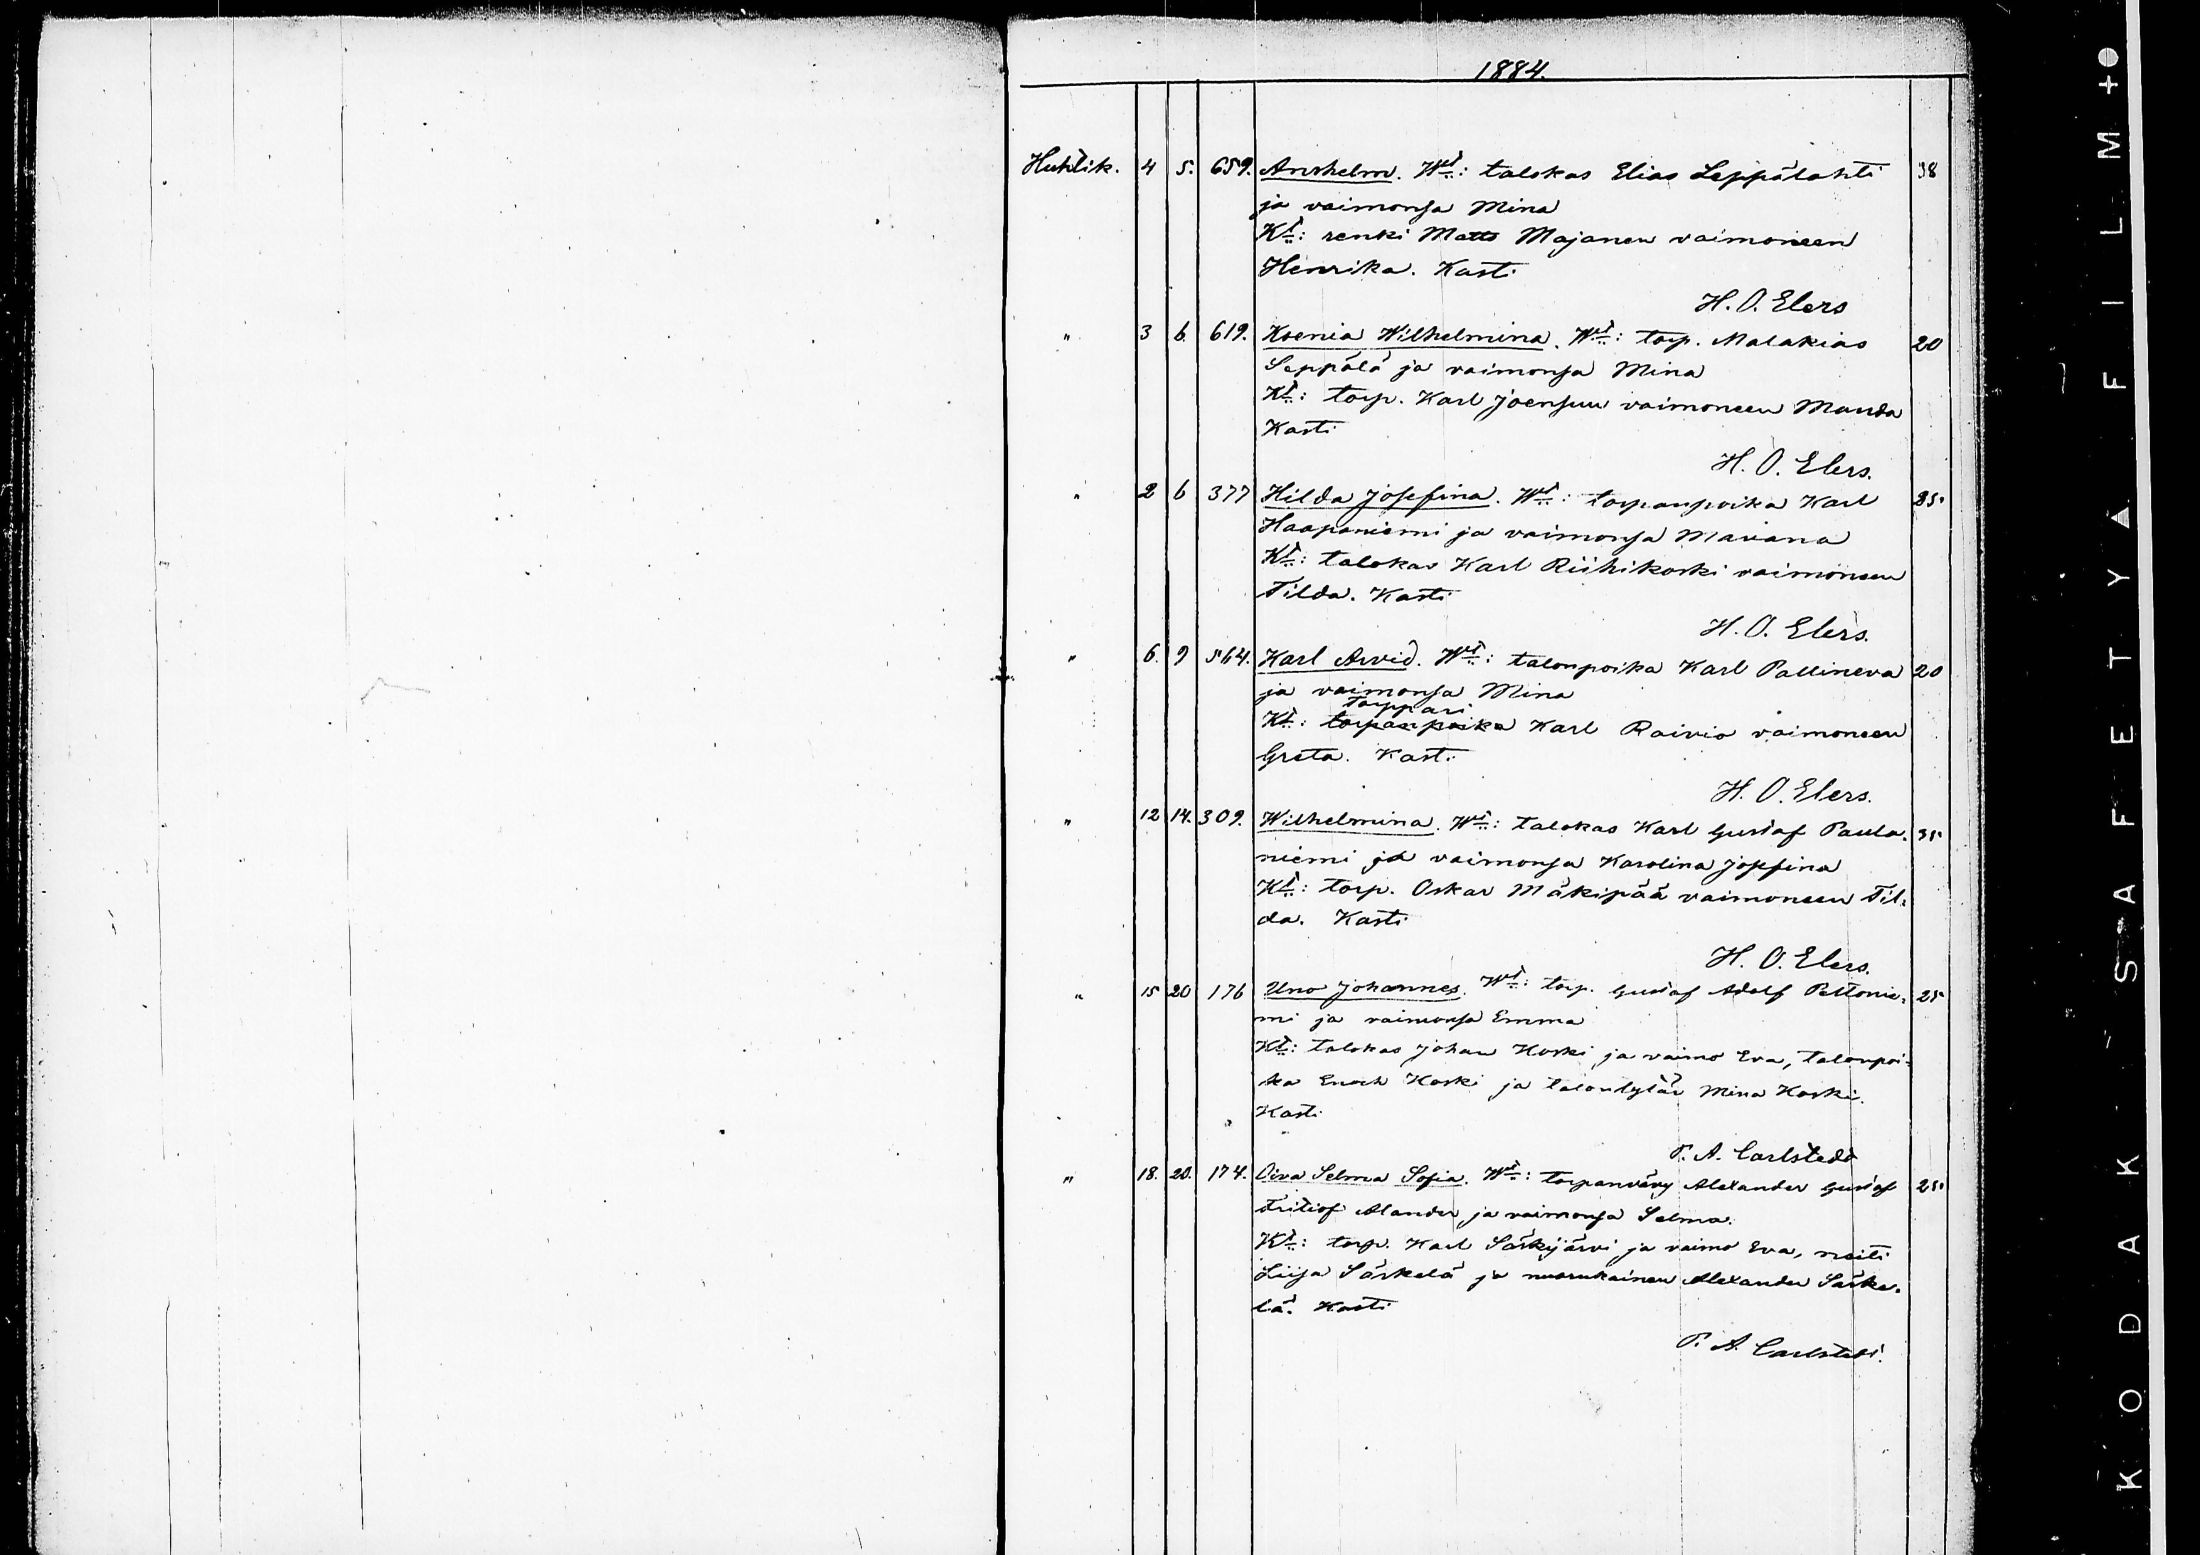 1884.
Huhtik. 4 5. 659. Anshelm. Wt: talokas Elias Leppälahti 38
ja vaimonsa Mina
Kt: renki Matts Majanen vaimoneen
Henrika. Kasti
H. O. Elers
" 3 6. 619. Ksenia Wilhelmina. Wt: torp. Malakias 20
Seppälä ja vaimonsa Mina
Kt: torp. Karl Joensuu vaimoneen Manda
Kasti
H. O. Elers.
" 2 6 377 Hilda Josefina. Wt: torpanpoika Karl 25
Haapaniemi ja vaimonsa Mariana
Kt: talokas Karl Riihikoski vaimoneen
Tilda. Kasti
H. O. Elers.
" 6. 9 564. Karl Arvid. Wt: talonpoika Karl Pallineva 20
ja vaimonsa Mina
torppari
Kt: torpanpoika Karl Raivio vaimoneen
Greta. Kasti
H. O. Elers.
" 12 14. 309. Wilhelmina. Wt: talokas Karl Gustaf Paula= 35
niemi ja vaimonsa Karolina Josefina
Kt: torp. Oskar Mäkipää vaimoneen Til=
da. Kasti
H. O. Elers.
" 15 20 176 Uno Johannes. Wt: torp. Gustaf Adolf Peltonie= 25
mi ja vaimonsa Emma
Kt: talokas Johan Koski ja vaimo Eva, talonpoi=
ka Enoch Koski ja talontytär Mina Koski.
Kasti
A. Carlstedt
" 18. 20. 174. Oiva Selma Sofia. Wt: torpanvävy Alexander Gustaf 25
Fritiof Alander ja vaimonsa Selma.
Kt: torp. Karl Särkijärvi ja vaimo Eva, neiti
Liisa Särkelä ja nuorukainen Alexander Särke=
lä. Kasti
A. Carlstedt.
KODAK SAFETY FILM